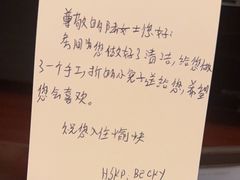 尊敬的陆女士您好:
房间为您做好了清洁,给您做
了一个手工折的小兔子送给您,希望
您会喜欢。
祝您入住愉快
HSKP. BECKY